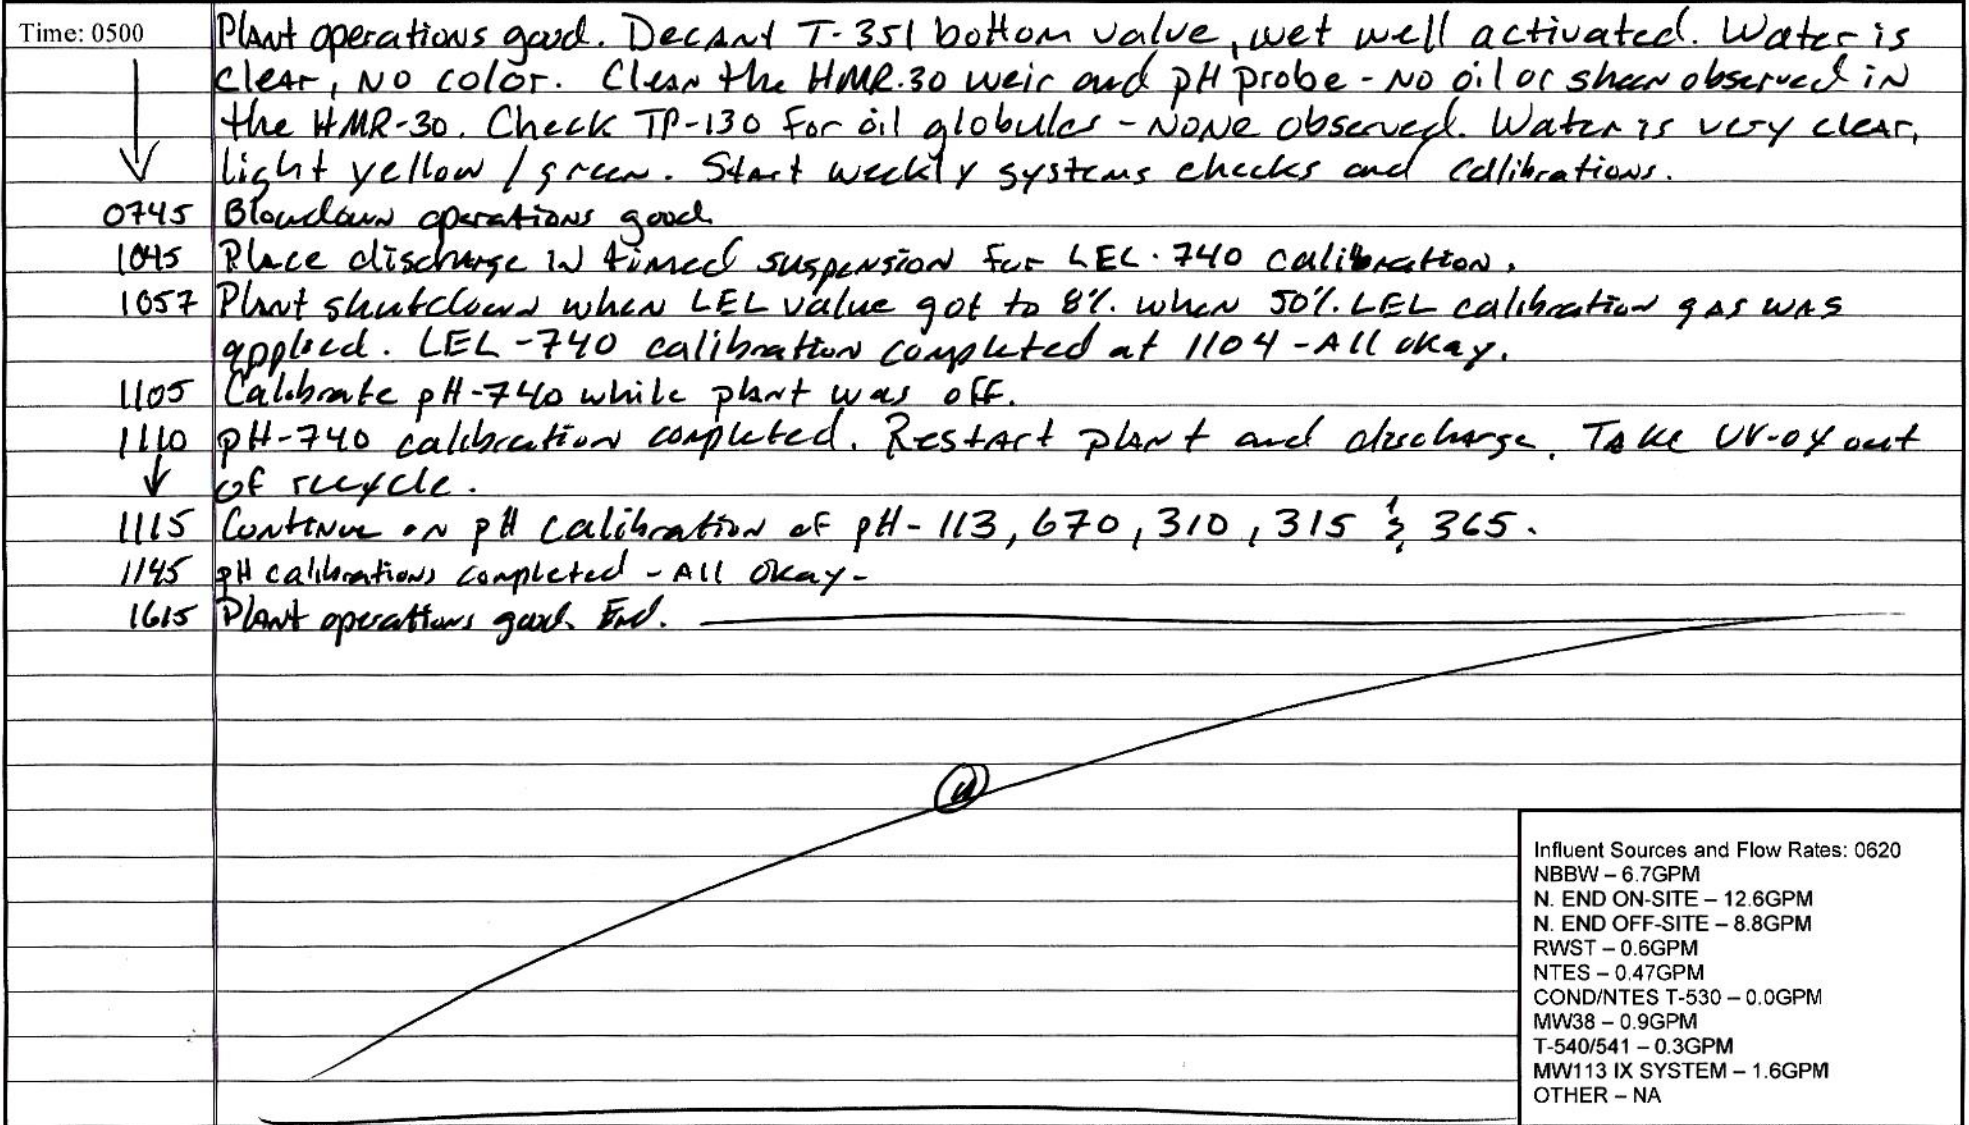 Time: 0500 Plant operations good. Decant T-351 bottom valve, wet well activated. Water is
clear, no color. Clean the HMR-30 weir and pH probe - No oil or sheen observed in
the HMR-30. Check TP-130 for oil globules - None observed. Water is very clear,
light yellow / green. Start weekly systems checks and callibrations.
0745 Blowdown operations good
1045 Place discharge in timed suspension for LEL-740 calibration.
1057 Plant shutdown when LEL value got to 8% when 50% LEL calibration gas was
applied. LEL-740 calibration completed at 1104 - All okay.
1105 Calibrate pH-740 while plant was off.
1110 pH-740 calibration completed. Restart plant and discharge. Take UV-ox out
of recycle.
1115 Continue on pH calibration of pH-113, 670, 310, 315 & 365.
1145 pH calibrations completed - All okay -
1615 Plant operations good. End.
Influent Sources and Flow Rates: 0620
NBBW – 6.7GPM
N. END ON-SITE – 12.6GPM
N. END OFF-SITE – 8.8GPM
RWST – 0.6GPM
NTES – 0.47GPM
COND/NTES T-530 – 0.0GPM
MW38 – 0.9GPM
T-540/541 – 0.3GPM
MW113 IX SYSTEM – 1.6GPM
OTHER – NA